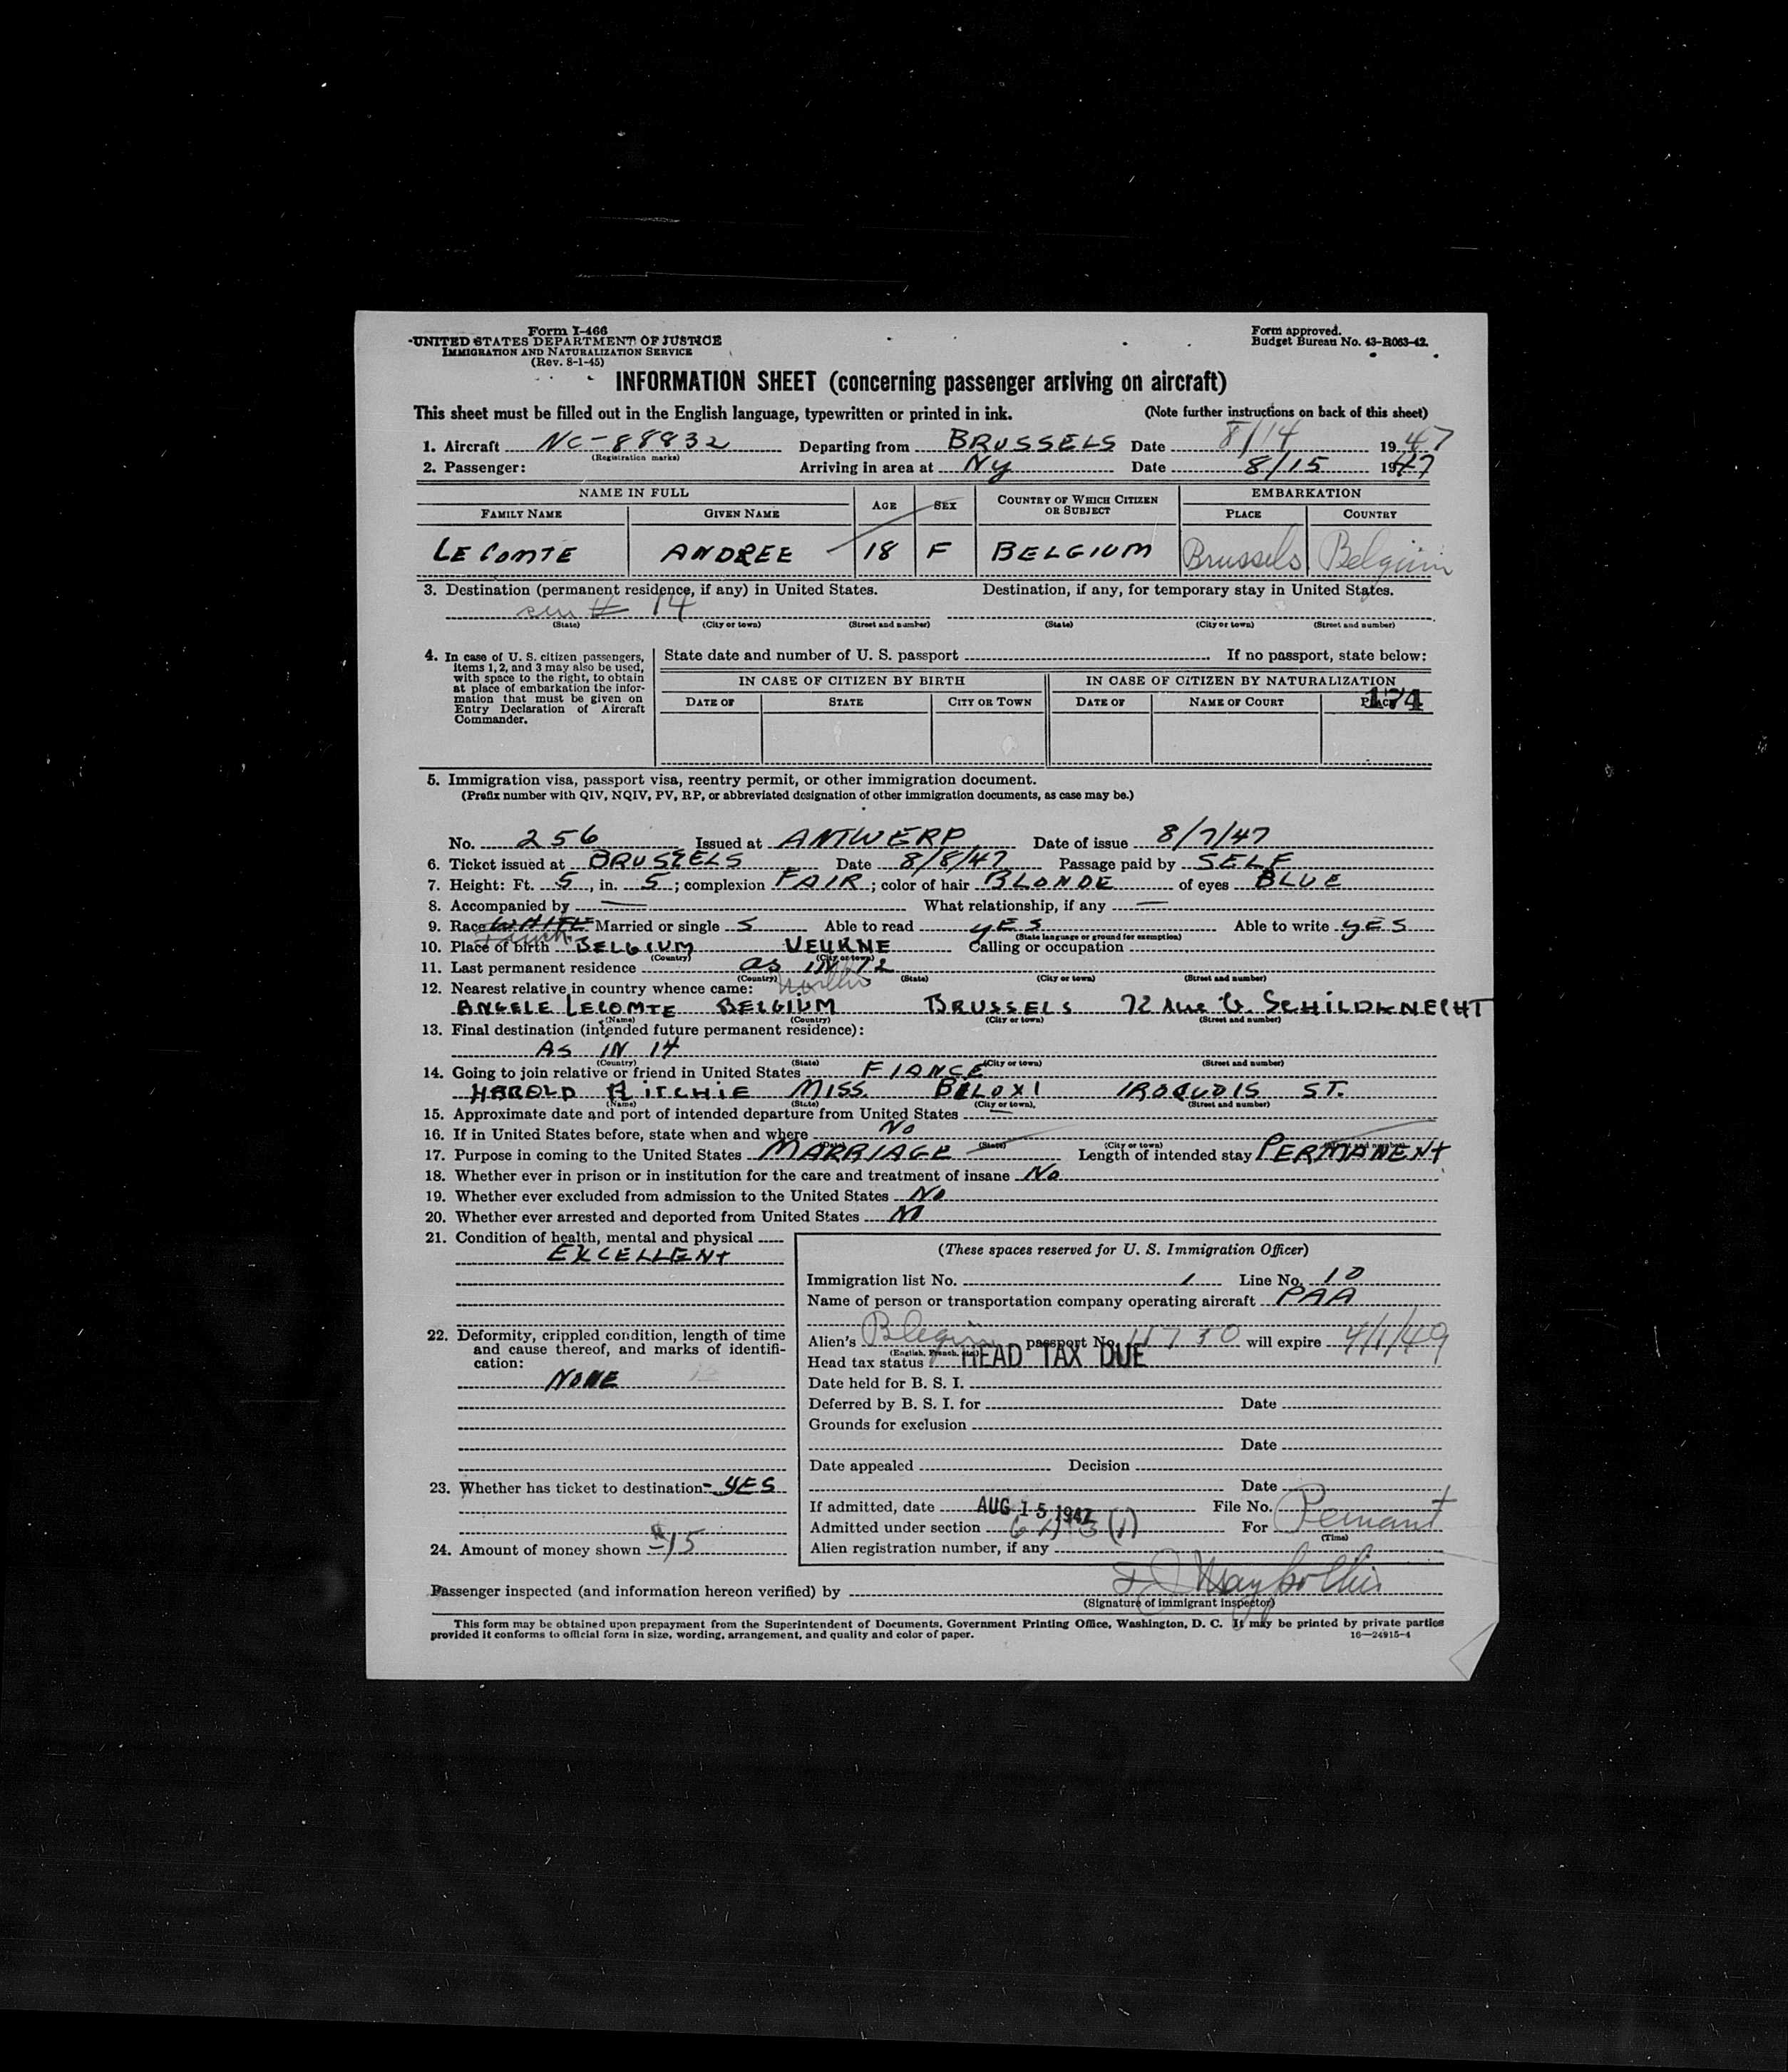 Form I-466
UNITED STATES DEPARTMENT OF JUSTICE
IMMIGRATION AND NATURALIZATION SERVICE
(Rev. 8-1-45)
Form approved.
Budget Bureau No. 43-R063-42.
INFORMATION SHEET (concerning passenger arriving on aircraft)
This sheet must be filled out in the English language, typewritten or printed in ink. (Note further instructions on back of this sheet)
1. Aircraft NC-88832 Departing from BRUSSELS Date 8/14 1947
(Registration marks)
2. Passenger: Arriving in area at NY Date 8/15 1947
NAME IN FULL AGE SEX COUNTRY OF WHICH CITIZEN OR SUBJECT EMBARKATION
FAMILY NAME GIVEN NAME PLACE COUNTRY
LECOMTE ANDREE 18 F BELGIUM Brussels Belgium
3. Destination (permanent residence, if any) in United States. Destination, if any, for temporary stay in United States.
# 14
(State) (City or town) (Street and number) (State) (City or town) (Street and number)
4. In case of U. S. citizen passengers, items 1, 2, and 3 may also be used, with space to the right, to obtain at place of embarkation the information that must be given on Entry Declaration of Aircraft Commander.
State date and number of U. S. passport If no passport, state below:
IN CASE OF CITIZEN BY BIRTH IN CASE OF CITIZEN BY NATURALIZATION
DATE OF STATE CITY OR TOWN DATE OF NAME OF COURT PLACE
174
5. Immigration visa, passport visa, reentry permit, or other immigration document.
(Prefix number with QIV, NQIV, PV, RP, or abbreviated designation of other immigration documents, as case may be.)
No. 256 Issued at ANTWERP Date of issue 8/7/47
6. Ticket issued at BRUSSELS Date 8/8/47 Passage paid by SELF
7. Height: Ft. 5, in. 5; complexion FAIR; color of hair BLONDE of eyes BLUE
8. Accompanied by — What relationship, if any —
9. Race WHITE Married or single S Able to read YES Able to write YES
(State language or ground for exemption)
10. Place of birth BELGIUM VEURNE Calling or occupation
(Country) (City or town)
11. Last permanent residence as IN 12
(Country) (State) (City or town) (Street and number)
12. Nearest relative in country whence came:
ANGELE LECOMTE BELGIUM BRUSSELS 72 Rue G. SCHILDKNECHT
(Name) (Country) (City or town) (Street and number)
13. Final destination (intended future permanent residence):
AS IN 14
(Country) (State) (City or town) (Street and number)
14. Going to join relative or friend in United States FIANCE
HAROLD RITCHIE MISS. BILOXI IROQUOIS ST.
(Name) (State) (City or town) (Street and number)
15. Approximate date and port of intended departure from United States —
16. If in United States before, state when and where NO
(Date) (State) (City or town) (Street and number)
17. Purpose in coming to the United States MARRIAGE Length of intended stay PERMANENT
18. Whether ever in prison or in institution for the care and treatment of insane NO
19. Whether ever excluded from admission to the United States NO
20. Whether ever arrested and deported from United States NO
21. Condition of health, mental and physical
EXCELLENT
22. Deformity, crippled condition, length of time and cause thereof, and marks of identification:
NONE
23. Whether has ticket to destination- YES
24. Amount of money shown $15
(These spaces reserved for U. S. Immigration Officer)
Immigration list No. 1 Line No. 10
Name of person or transportation company operating aircraft PAA
Alien's passport No. 11730 will expire 4/1/49
(English, French, etc.)
Head tax status HEAD TAX DUE
Date held for B. S. I.
Deferred by B. S. I. for Date
Grounds for exclusion
Date
Date appealed Decision
Date
If admitted, date AUG 15 1947 File No.
Admitted under section For
(Time)
Alien registration number, if any
Passenger inspected (and information hereon verified) by
(Signature of immigrant inspector)
This form may be obtained upon prepayment from the Superintendent of Documents, Government Printing Office, Washington, D. C. It may be printed by private parties
provided it conforms to official form in size, wording, arrangement, and quality and color of paper. 16—24915-4